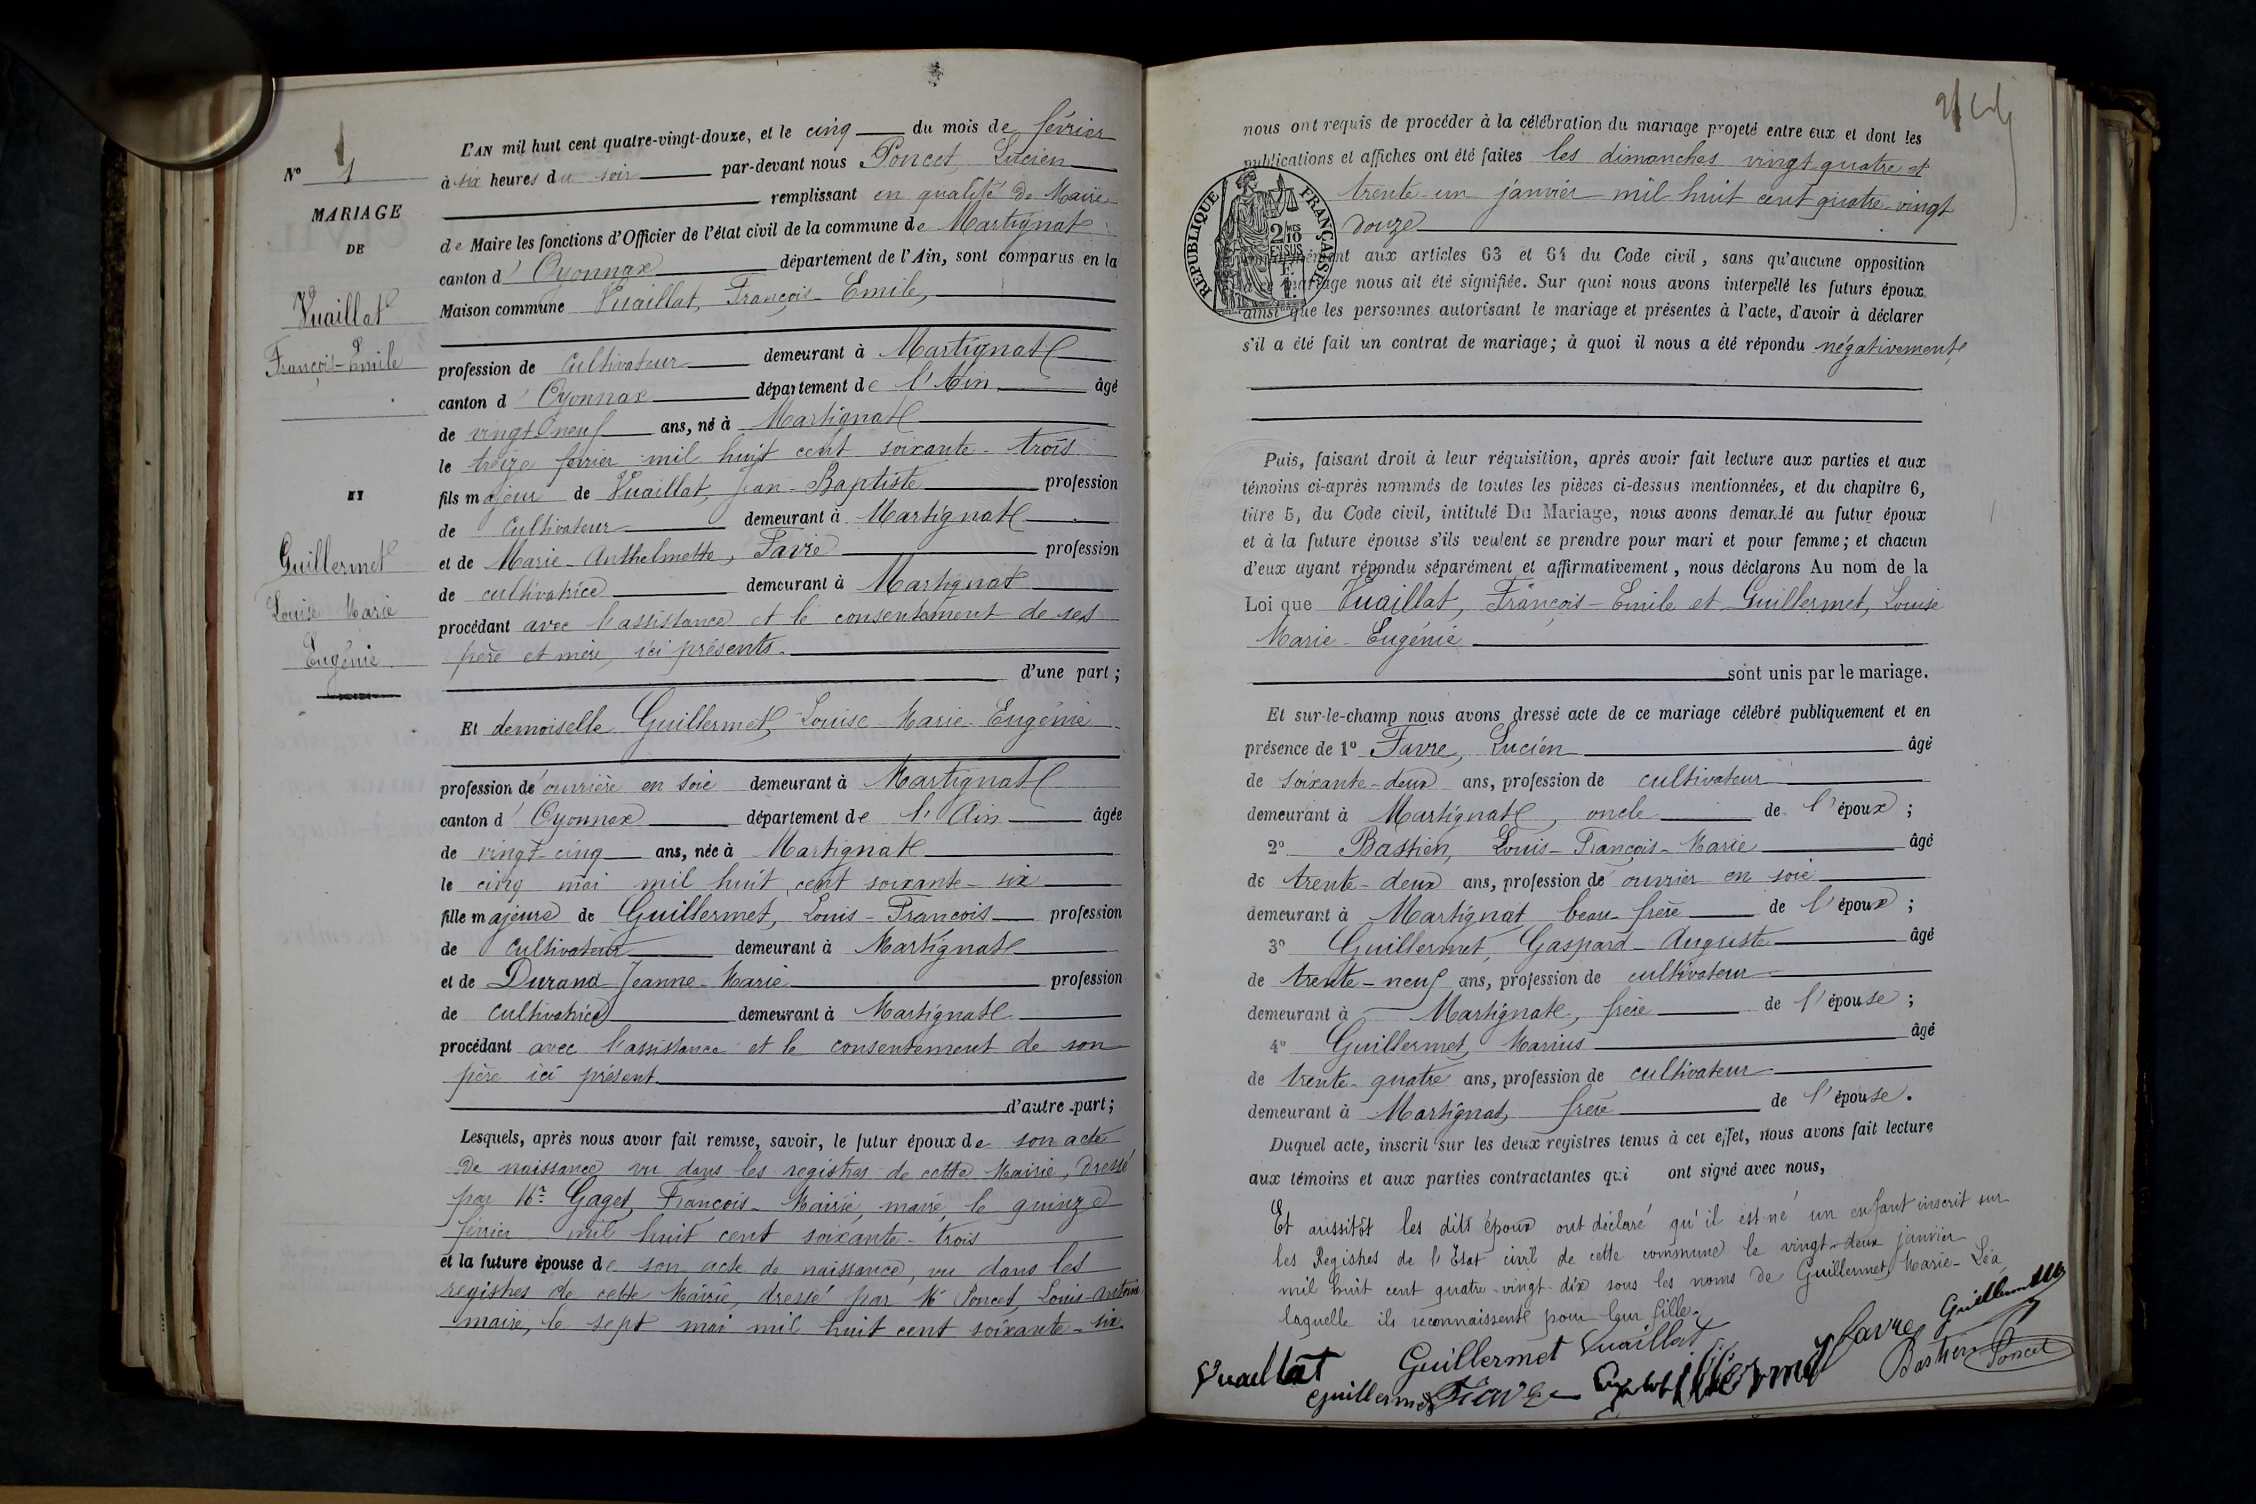 N° 1
MARIAGE
DE
Vuaillat
François-Emile
ET
Guillermet
Louise Marie
Eugénie
L'AN mil huit cent quatre-vingt-douze, et le cinq du mois de février
à six heures du soir par-devant nous Poncet, Lucien
remplissant en qualité de Maire
de Maire les fonctions d'Officier de l'état civil de la commune de Martignat
canton d'Oyonnax département de l'Ain, sont comparus en la
Maison commune Vuaillat, François-Emile,
profession de cultivateur demeurant à Martignat
canton d'Oyonnax département de l'Ain âgé
de vingt neuf ans, né à Martignat
le treize février mil huit cent soixante-trois
fils majeur de Vuaillat, Jean-Baptiste profession
de cultivateur demeurant à Martignat
et de Marie-Anthelmette, Favre profession
de cultivatrice demeurant à Martignat
procédant avec l'assistance et le consentement de ses
père et mère, ici présents.
d'une part;
Et demoiselle Guillermet, Louise-Marie-Eugénie
profession de ouvrière en soie demeurant à Martignat
canton d'Oyonnax département de l'Ain âgée
de vingt-cinq ans, née à Martignat
le cinq mai mil huit cent soixante-six
fille majeure de Guillermet, Louis-François profession
de cultivateur demeurant à Martignat
et de Durand Jeanne-Marie profession
de cultivatrice demeurant à Martignat
procédant avec l'assistance et le consentement de son
père ici présent.
d'autre part;
Lesquels, après nous avoir fait remise, savoir, le futur époux de son acte
de naissance vu dans les registres de cette Mairie, dressé
par Mr Gaget, François-Marie, maire, le quinze
février mil huit cent soixante-trois
et la future épouse de son acte de naissance, vu dans les
registres de cette Mairie, dressé par Mr Poncet, Louis-Antoine
maire, le sept mai mil huit cent soixante-six
nous ont requis de procéder à la célébration du mariage projeté entre eux et dont les
publications et affiches ont été faites les dimanches vingt quatre et
trente-un janvier mil huit cent quatre-vingt
douze
RÉPUBLIQUE FRANÇAISE
2/10 EN SUS
conformément aux articles 63 et 64 du Code civil, sans qu'aucune opposition
à ce mariage nous ait été signifiée. Sur quoi nous avons interpellé les futurs époux
ainsi que les personnes autorisant le mariage et présentes à l'acte, d'avoir à déclarer
s'il a été fait un contrat de mariage; à quoi il nous a été répondu négativement
Puis, faisant droit à leur réquisition, après avoir fait lecture aux parties et aux
témoins ci-après nommés de toutes les pièces ci-dessus mentionnées, et du chapitre 6,
titre 5, du Code civil, intitulé Du Mariage, nous avons demandé au futur époux
et à la future épouse s'ils veulent se prendre pour mari et pour femme; et chacun
d'eux ayant répondu séparément et affirmativement, nous déclarons Au nom de la
Loi que Vuaillat, François-Emile et Guillermet, Louise
Marie-Eugénie
sont unis par le mariage.
Et sur-le-champ nous avons dressé acte de ce mariage célébré publiquement et en
présence de 1° Favre, Lucien âgé
de soixante-deux ans, profession de cultivateur
demeurant à Martignat, oncle de l'époux;
2° Bastien, Louis-François-Marie âgé
de trente-deux ans, profession de ouvrier en soie
demeurant à Martignat beau-frère de l'époux;
3° Guillermet, Gaspard-Auguste âgé
de trente-neuf ans, profession de cultivateur
demeurant à Martignat, frère de l'épouse;
4° Guillermet, Marius âgé
de trente-quatre ans, profession de cultivateur
demeurant à Martignat, frère de l'épouse.
Duquel acte, inscrit sur les deux registres tenus à cet effet, nous avons fait lecture
aux témoins et aux parties contractantes qui ont signé avec nous,
Et aussitôt les dits époux ont déclaré qu'il est né un enfant inscrit sur
les Registres de l'Etat civil de cette commune le vingt-deux janvier
mil huit cent quatre-vingt-dix sous les noms de Guillermet, Marie-Léa
laquelle ils reconnaissent pour leur fille.
Vuaillat Guillermet Vuaillat Favre Guillermet
Guillermet Favre Guillermet Bastien Poncet